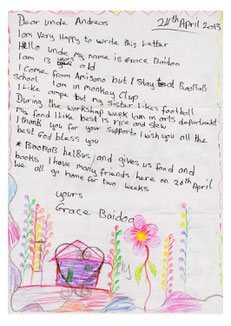 Dear uncle Andreas
24th April 2013
I am Very Happy to write this Letter
Hello uncle my name is Grace Baidoo
I am 13 old
I come from Amisano but I stay at BaoBaB
school I am in monkey Clup
I Like ampe but my sister Likes football
During the workshop week I am in arts department
my food I Like best is rice and stew
I thank you for your support. I wish you all the
best God bless you
* BaoBaB helBus and gives us food and
books I have many friends here on 26th April
we all go home for two weeks
yours
Grace Baidoo